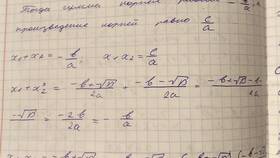 Тогда сумма корней равно -в/a, а
произведение корней равно c/a
x₁+x₂ = -в/a, x₁x₂ = c/a
x₁+x₂ = (-в+√D)/2a + (-в-√D)/2a = (-в+√D-в
-√D)/2a = -2в/2a = -в/a